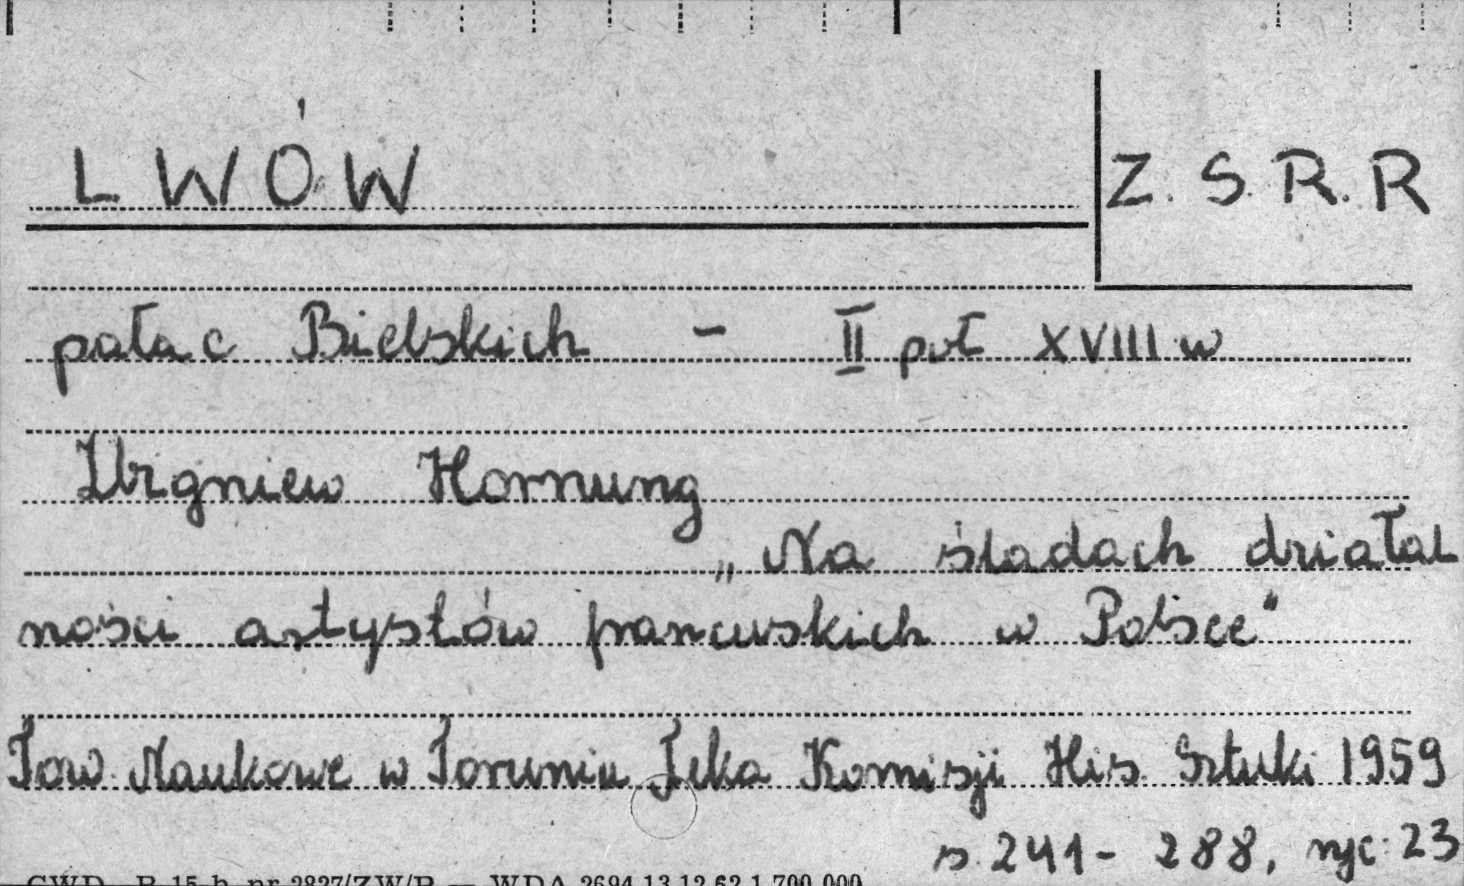 LWÓW
Z.S.R.R
pałac Bielskich - II poł XVIII w
Zbigniew Hornung
„Na śladach działal
ności artystów francuskich w Polsce"
Tow. Naukowe w Toruniu Teka Komisji His. Sztuki 1959
s. 241-288, ryc: 23
CWD R-15-b nr 2827/ZW/R — WDA 2694 13.12.62 1.700.000